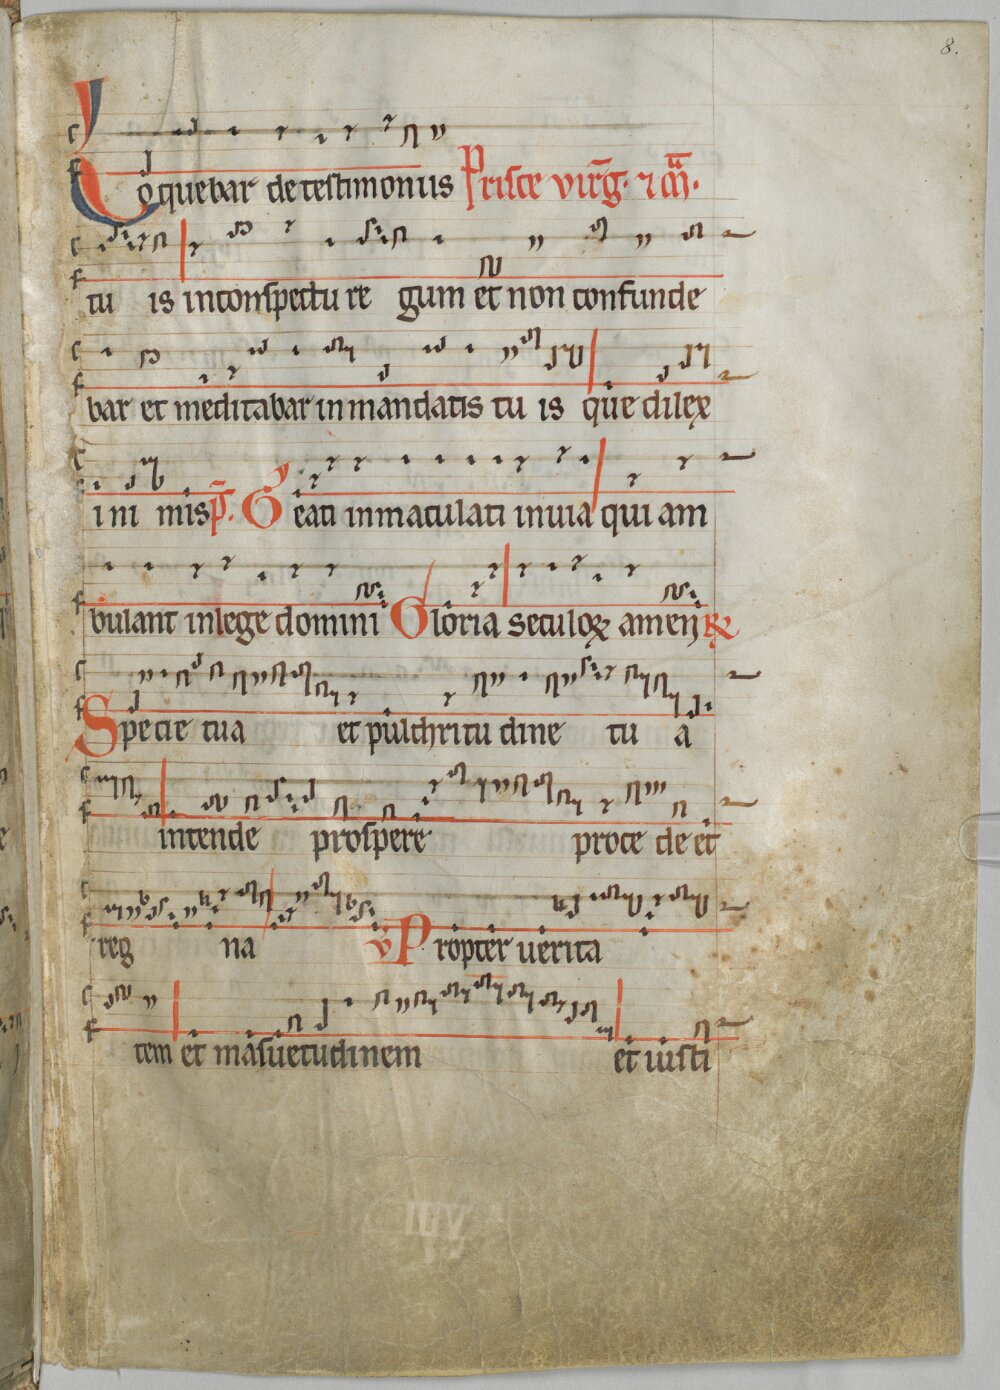 8.
Loquebar de testimoniis Prisce virg̅. ⁊ m̅.
tu is in conspectu re gum et non confunde
bar et meditabar in mandatis tu is que dilex
i ni mis p̅. Beati inmaculati in uia qui am
bulant in lege domini Gloria seculoꝝ amen ℟
Specie tua et pulchritu dine tu a
intende prospere proce de et
reg na v̅ Propter uerita
tem et masuetudinem et iusti